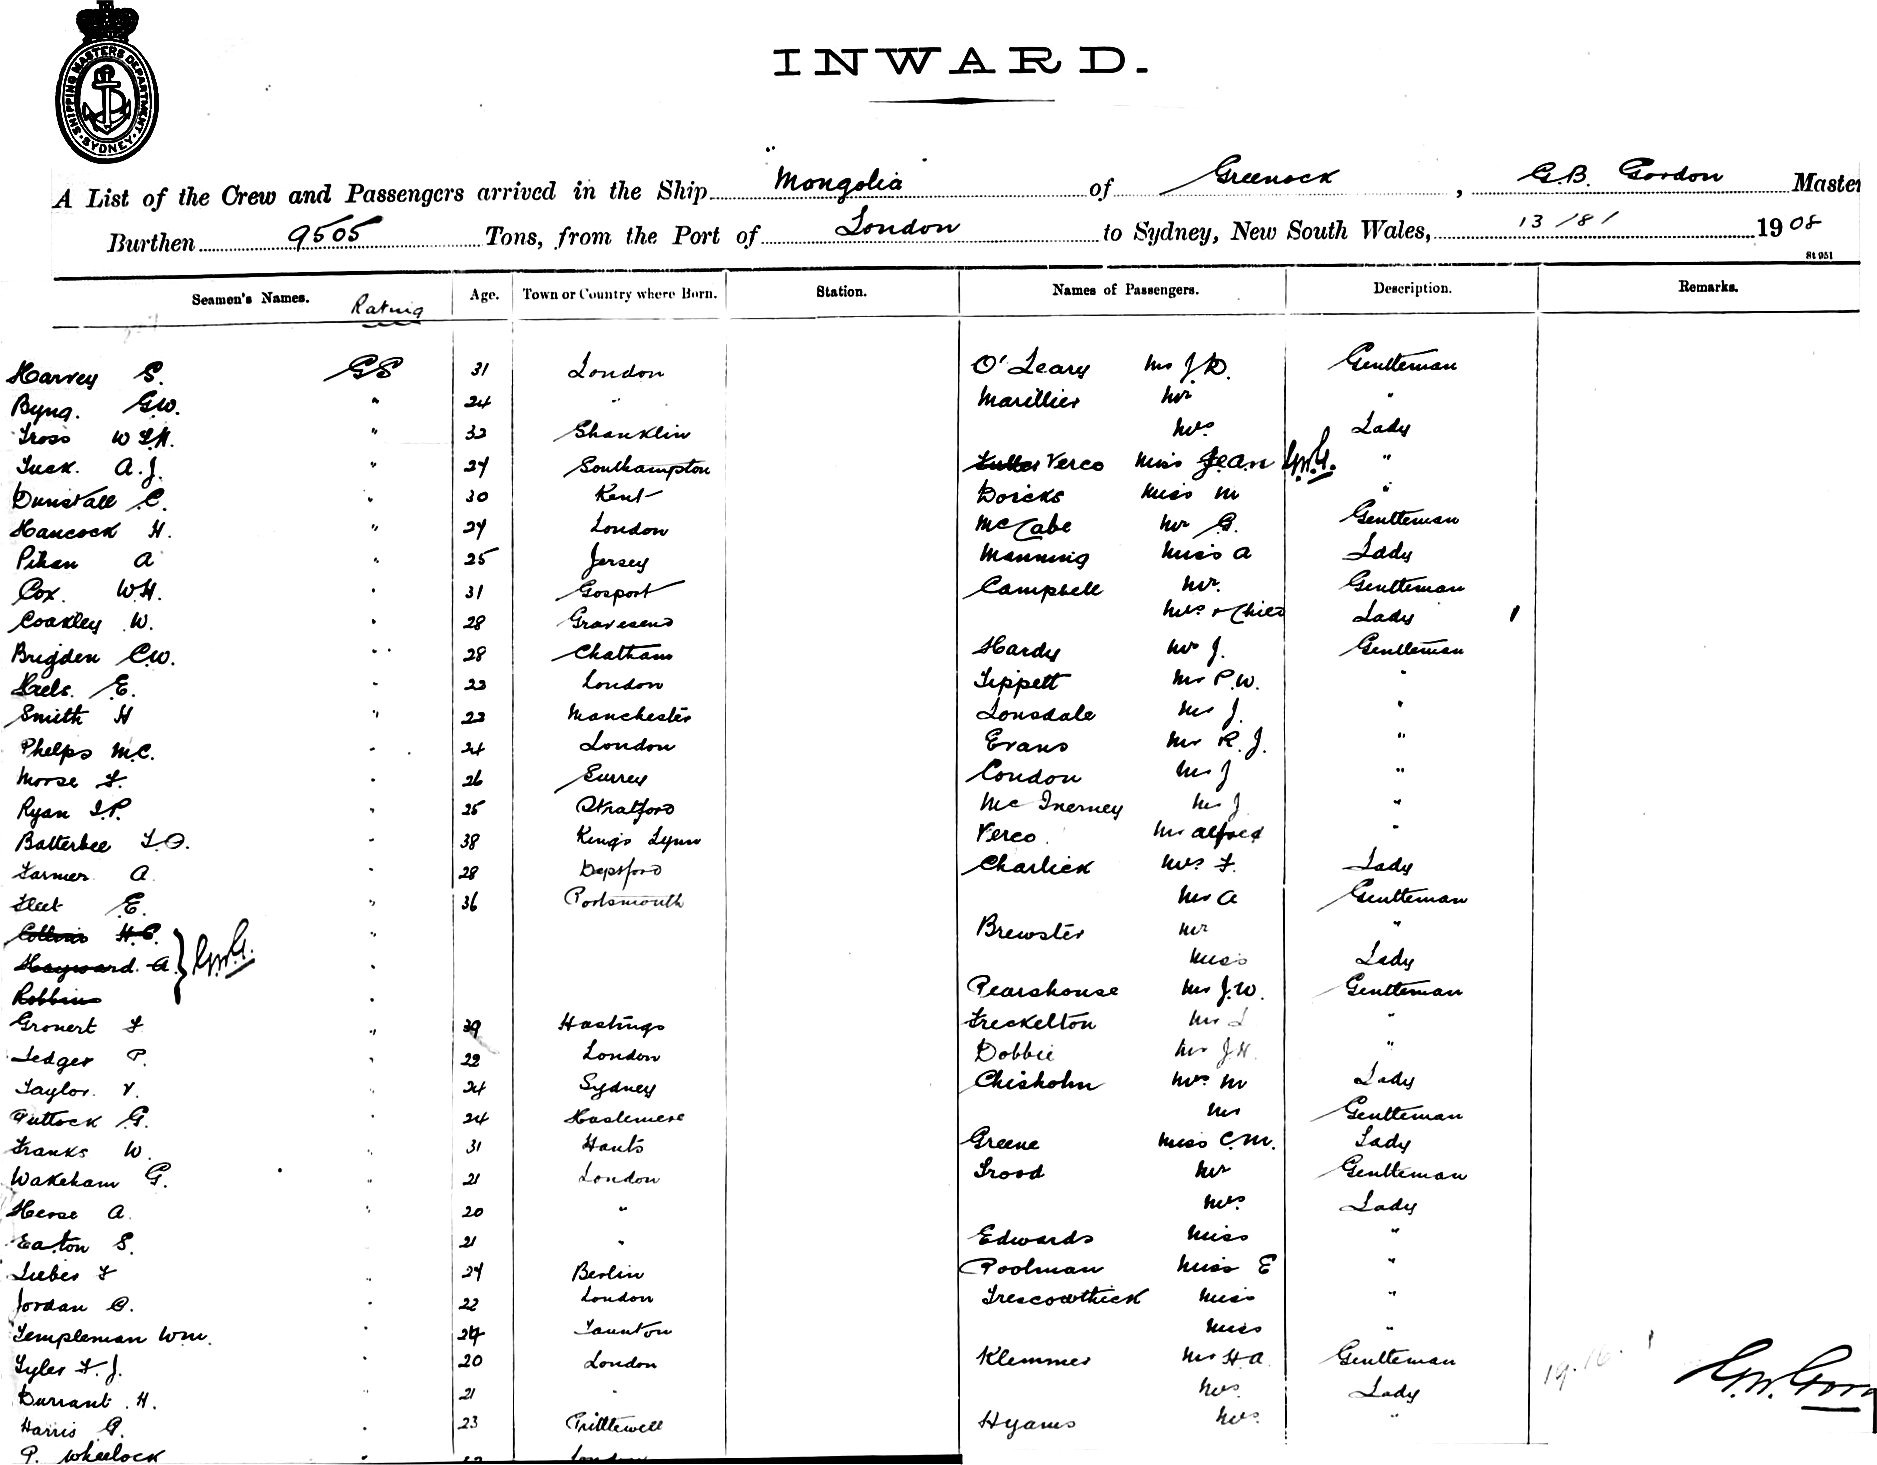 SHIPPING MASTERS DEPARTMENT
SYDNEY
INWARD.
A List of the Crew and Passengers arrived in the Ship "Mongolia" of Greenock, G.B. Gordon Master
Burthen 9505 Tons, from the Port of London to Sydney, New South Wales, 13/8/ 1908
St 951
Seamen's Names. Rating Age. Town or Country where Born. Station. Names of Passengers. Description. Remarks.
Harvey S. GS 31 London O'Leary Mr J.D. Gentleman
Byng. G.W. " 24 " Marillier Mr "
Tross W " 32 Shanklin Mrs Lady
Tuck. A.J. " 24 Southampton Verco Miss Jean "
Dunstall C. " 30 Kent Dorcks Miss M "
Hancock H. " 24 London McCabe Mr G. Gentleman
Pihan A " 25 Jersey Manning Miss A Lady
Cox. W.H. " 31 Gosport Campbell Mr. Gentleman
Coakley W. " 28 Gravesend Mrs + Child Lady 1
Brigden C.W. " 28 Chatham Hardy Mr J. Gentleman
Haels. E. " 22 London Tippett Mr P.W. "
Smith H " 22 Manchester Lonsdale Mr J. "
Phelps M.C. " 24 London Evans Mr R.J. "
Morse F. " 26 Surrey Condon Mr J "
Ryan J.P. " 25 Stratford McInerney Mr J. "
Batterbee F.O. " 38 Kings Lynn Verco. Mr Alfred "
Farmer A. " 28 Deptford Charlick Mrs F. Lady
Fleet E. " 36 Portsmouth Mr A Gentleman
Collins H.C. " Brewster Mr "
Hayward. A. " Miss Lady
Robbins " Pearshouse Mr J.W. Gentleman
Gronert F " 39 Hastings Freckelton Mr "
Ledger P. " 22 London Dobbie Mr J.H. "
Taylor. V. " 24 Sydney Chisholm Mrs M Lady
Puttock G. " 24 Haslemere Mr Gentleman
Franks W. " 31 Hants Greene Miss C.M. Lady
Wakeham G. " 21 London Trood Mr Gentleman
Herse A. " 20 " Mrs. Lady
Eaton S. " 21 " Edwards Miss "
Lieber F " 24 Berlin Poolman Miss E "
Jordan C. " 22 London Trescowthick Miss "
Templeman Wm. " 24 Taunton Miss "
Tyler F.J. " 20 London Klemmer Mr H A Gentleman
Durrant H. " 21 " Mrs. Lady
Harris G. " 23 Prittlewell Hyams Mrs. "
P. Wheelock " London